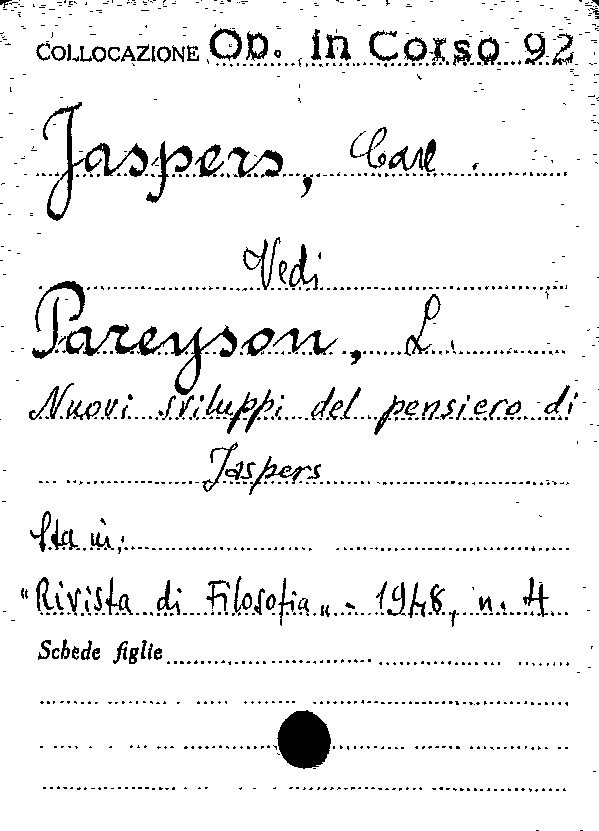 COLLOCAZIONE Op. in Corso 92
Jaspers, Carl.
Vedi
Pareyson, L.
Nuovi sviluppi del pensiero di
Jaspers
Sta in:
"Rivista di Filosofia" - 1948, n. 4
Schede figlie